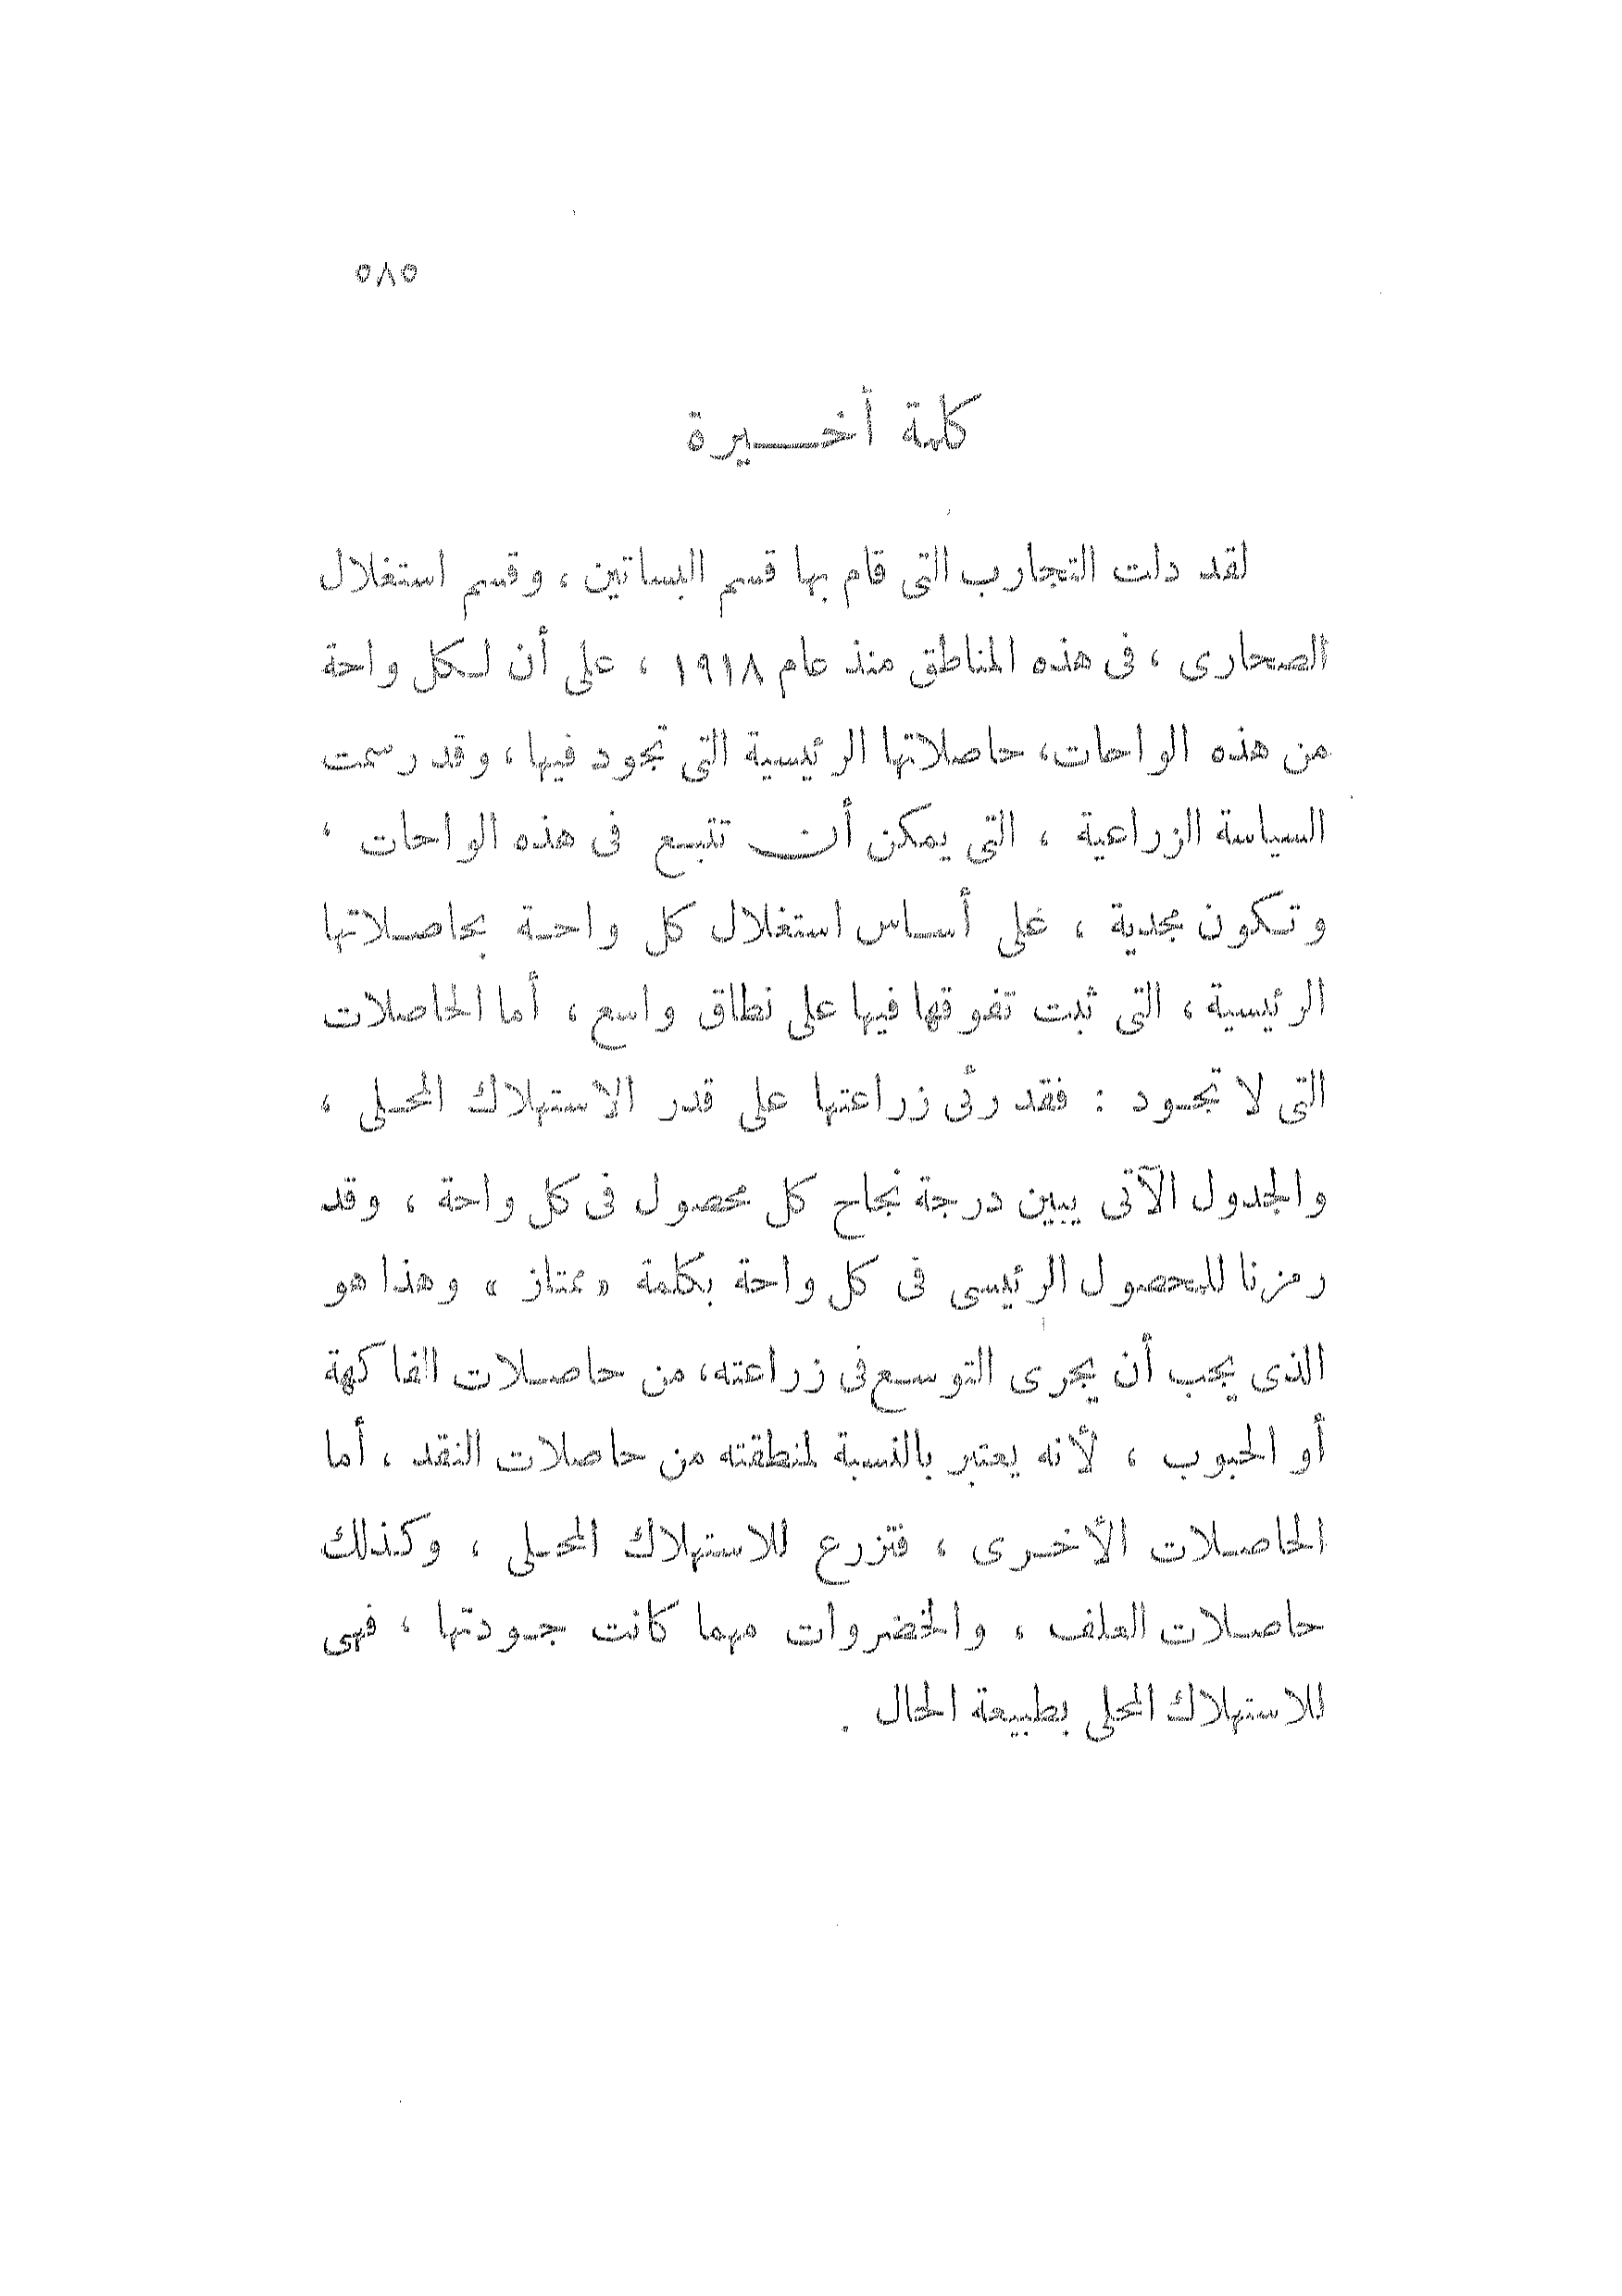 ٥٨٥
كلمة أخيرة
لقد دلت التجارب التى قام بها قسم البساتين ، وقسم استغلال
الصحارى ، فى هذه المناطق منذ عام ١٩١٨ ، على أن لكل واحة
من هذه الواحات، حاصلاتها الرئيسية التى تجود فيها ، وقد رسمت
السياسة الزراعية ، التى يمكن أن تتبع فى هذه الواحات ،
وتكون مجدية ، على أساس استغلال كل واحة بحاصلاتها
الرئيسية ، التى ثبت تفوقها فيها على نطاق واسع ، أما الحاصلات
التى لا تجود : فقد رئى زراعتها على قدر الاستهلاك المحلى ،
والجدول الآتى يبين درجة نجاح كل محصول فى كل واحة ، وقد
رمزنا للمحصول الرئيسى فى كل واحة بكلمة « ممتاز » وهذا هو
الذى يجب أن يجرى التوسع فى زراعته، من حاصلات الفاكهة
أو الحبوب ، لأنه يعتبر بالنسبة لمنطقته من حاصلات النقد ، أما
الحاصلات الأخرى ، فتزرع للاستهلاك المحلى ، وكذلك
حاصلات العلف ، والخضروات مهما كانت جودتها ، فهى
للاستهلاك المحلى بطبيعة الحال .